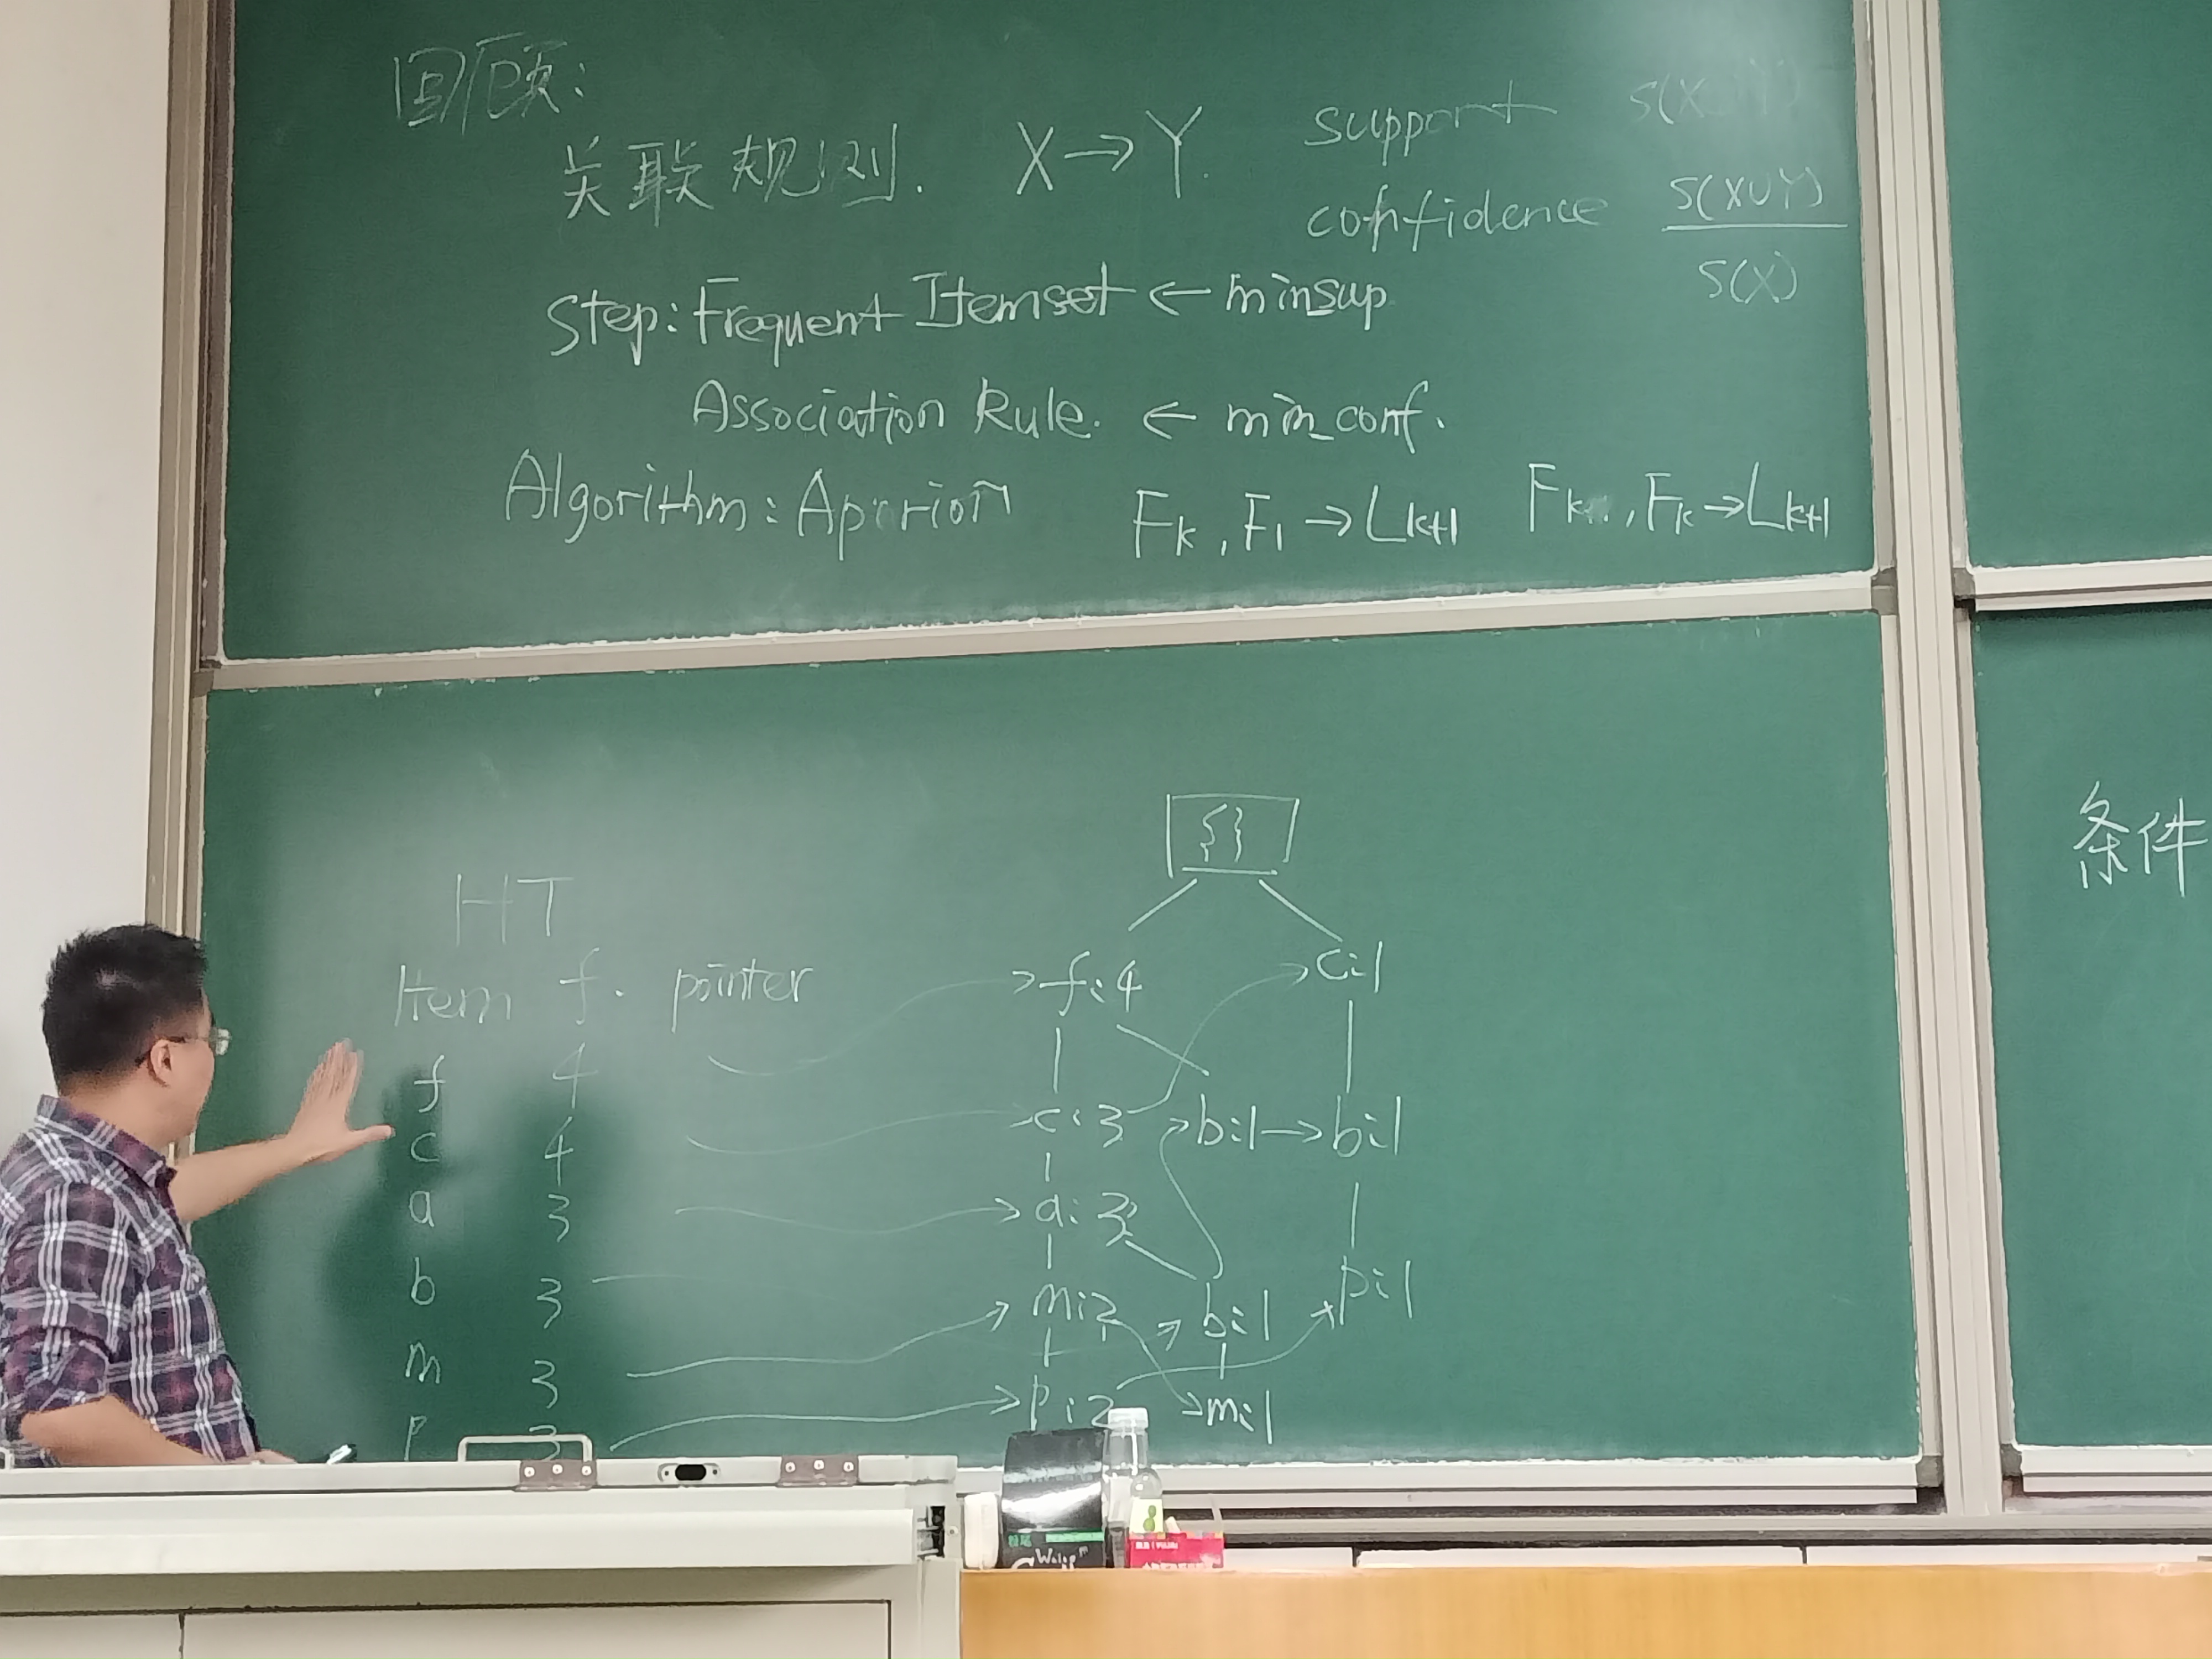 回顾:
关联规则. X→Y. support S(X
confidence S(X∪Y)
S(X)
Step: Frequent Itemset ← minsup
Association Rule. ← min_conf.
Algorithm: Apariori Fk, F1 → Lk+1 Fk, Fk → Lk+1
{}
条件
HT
Item f. pointer f:4 c:1
f 4
c 4 c:3 b:1 → b:1
a 3 a:3
b 3 m:2 b:1 p:1
m 3
p 3 p:2 m:1